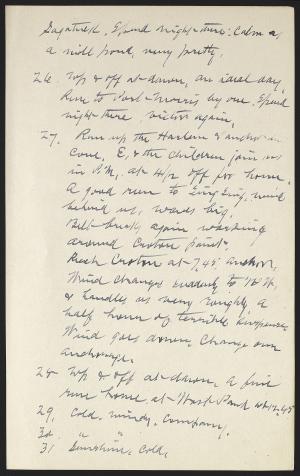 Sagatuck. Spend night there. Calm as
a mill pond, very pretty.
26. Up & off at dawn, an ideal day,
Run to Port Morris by one. Spend
night there. again.
27. Run up the Harlem & anchor in
Cove. E. & the children join us
in P.M. at 4½ off for home.
A good run to Sing Sing, wind
behind us, waves big.
Bell buoy again
around Croton Point.
Reach Croton at 7.45. anchor,
Wind changes suddenly to N.W.
& handles us very roughly, a
half hour of terrible suspense.
Wind goes down. Change our
anchorage.
28 Up & off at dawn. A fine
run home, at West Park at 12.45
29. Cold, windy, Company.
30 " "
31 Sunshine, Cold.